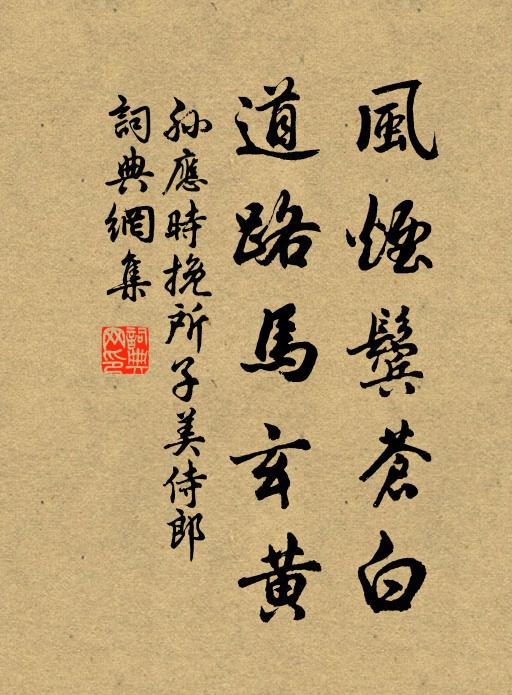 風煙鬢蒼白
道路馬玄黃
孫應時挽所子美侍郎
詞典網集
詞典
网印